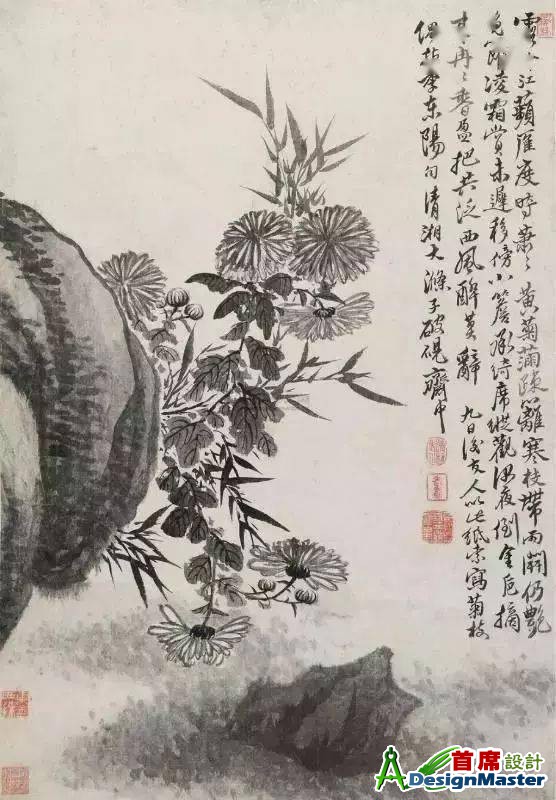 江蘋雁度時叢叢黃菊滿疎籬寒枝帶雨開仍艷
節凌霜賞未遲移傍小簷承席縱觀深夜倒金卮摘
來冉冉香盈把共泛西風醉莫辭 九日後友人以此紙索寫菊枝
偶拈李東陽句清湘大滌子破硯齋中
首席設計
DesignMaster